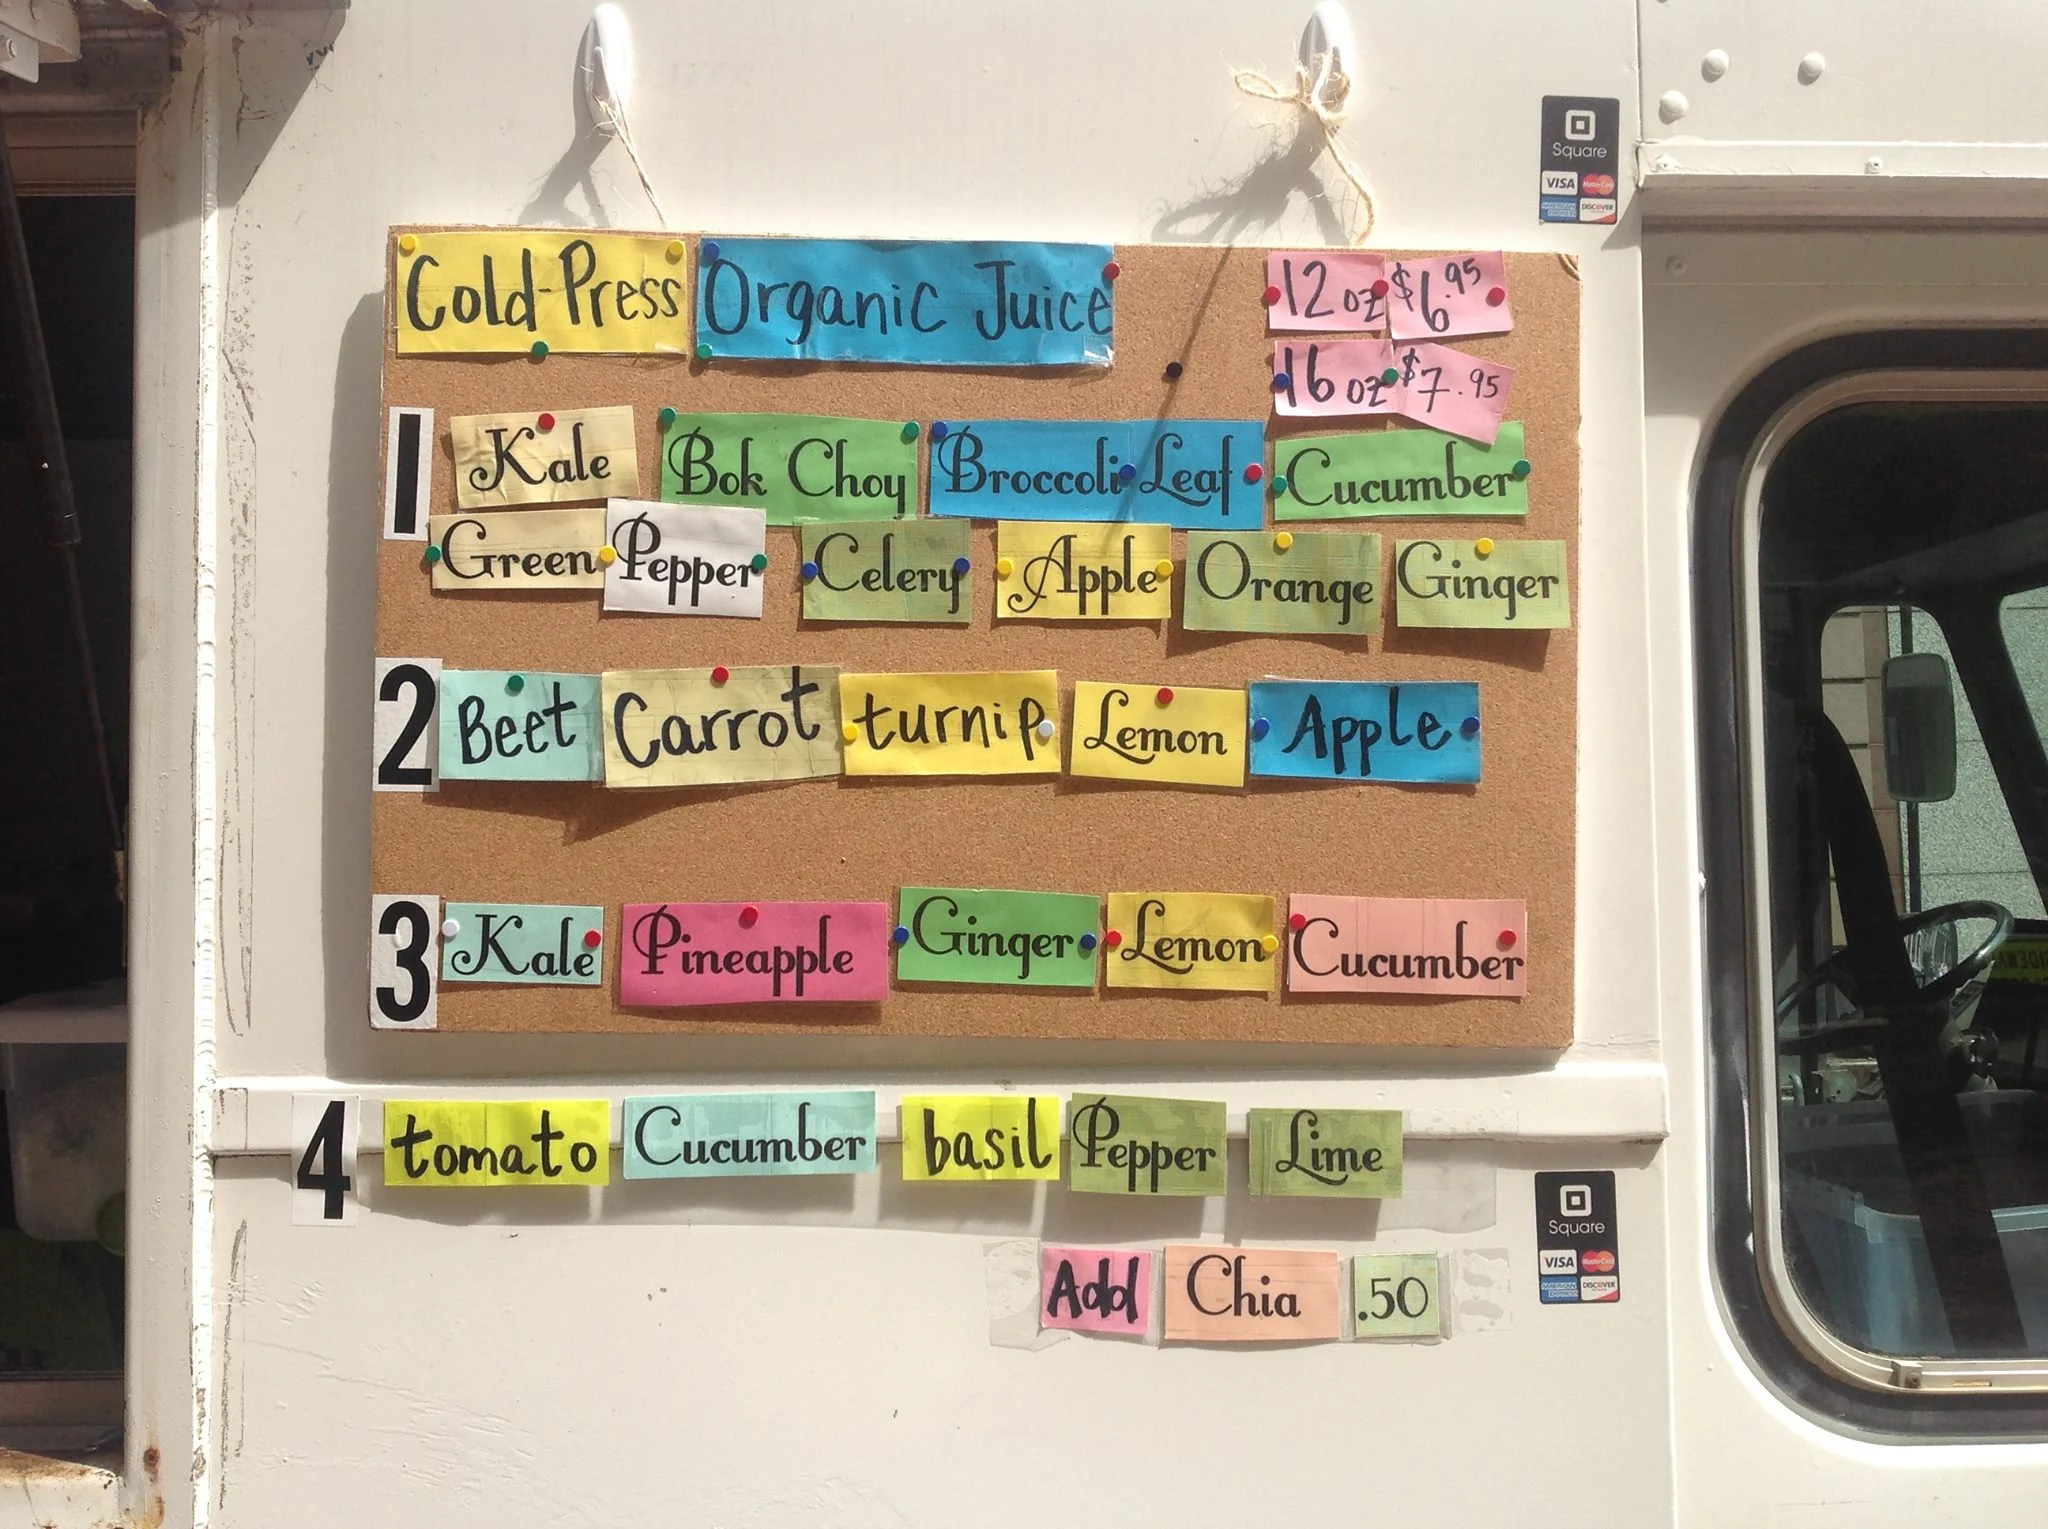 Cold-Press Organic Juice
12 oz $6.95
16 oz $7.95
1 Kale Bok Choy Broccoli Leaf Cucumber
Green Pepper Celery Apple Orange Ginger
2 Beet Carrot turnip Lemon Apple
3 Kale Pineapple Ginger Lemon Cucumber
4 tomato Cucumber basil Pepper Lime
Add Chia .50
Square
VISA MasterCard
AMERICAN EXPRESS DISCOVER
Square
VISA MasterCard
AMERICAN EXPRESS DISCOVER